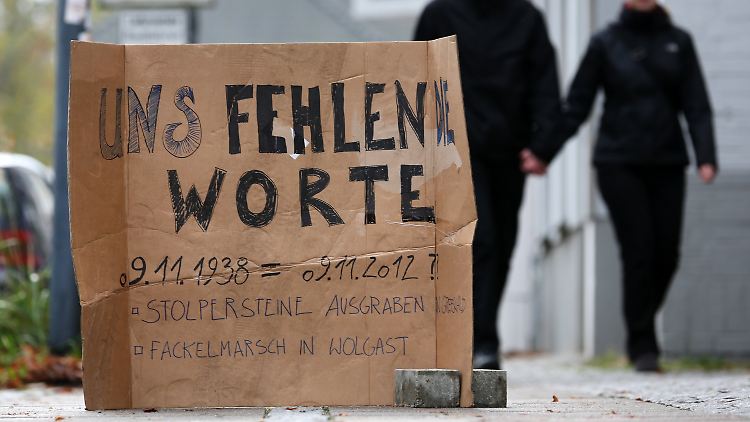 UNS FEHLEN DIE
WORTE
09.11.1938 = 09.11.2012 ?
STOLPERSTEINE AUSGRABEN
FACKELMARSCH IN WOLGAST